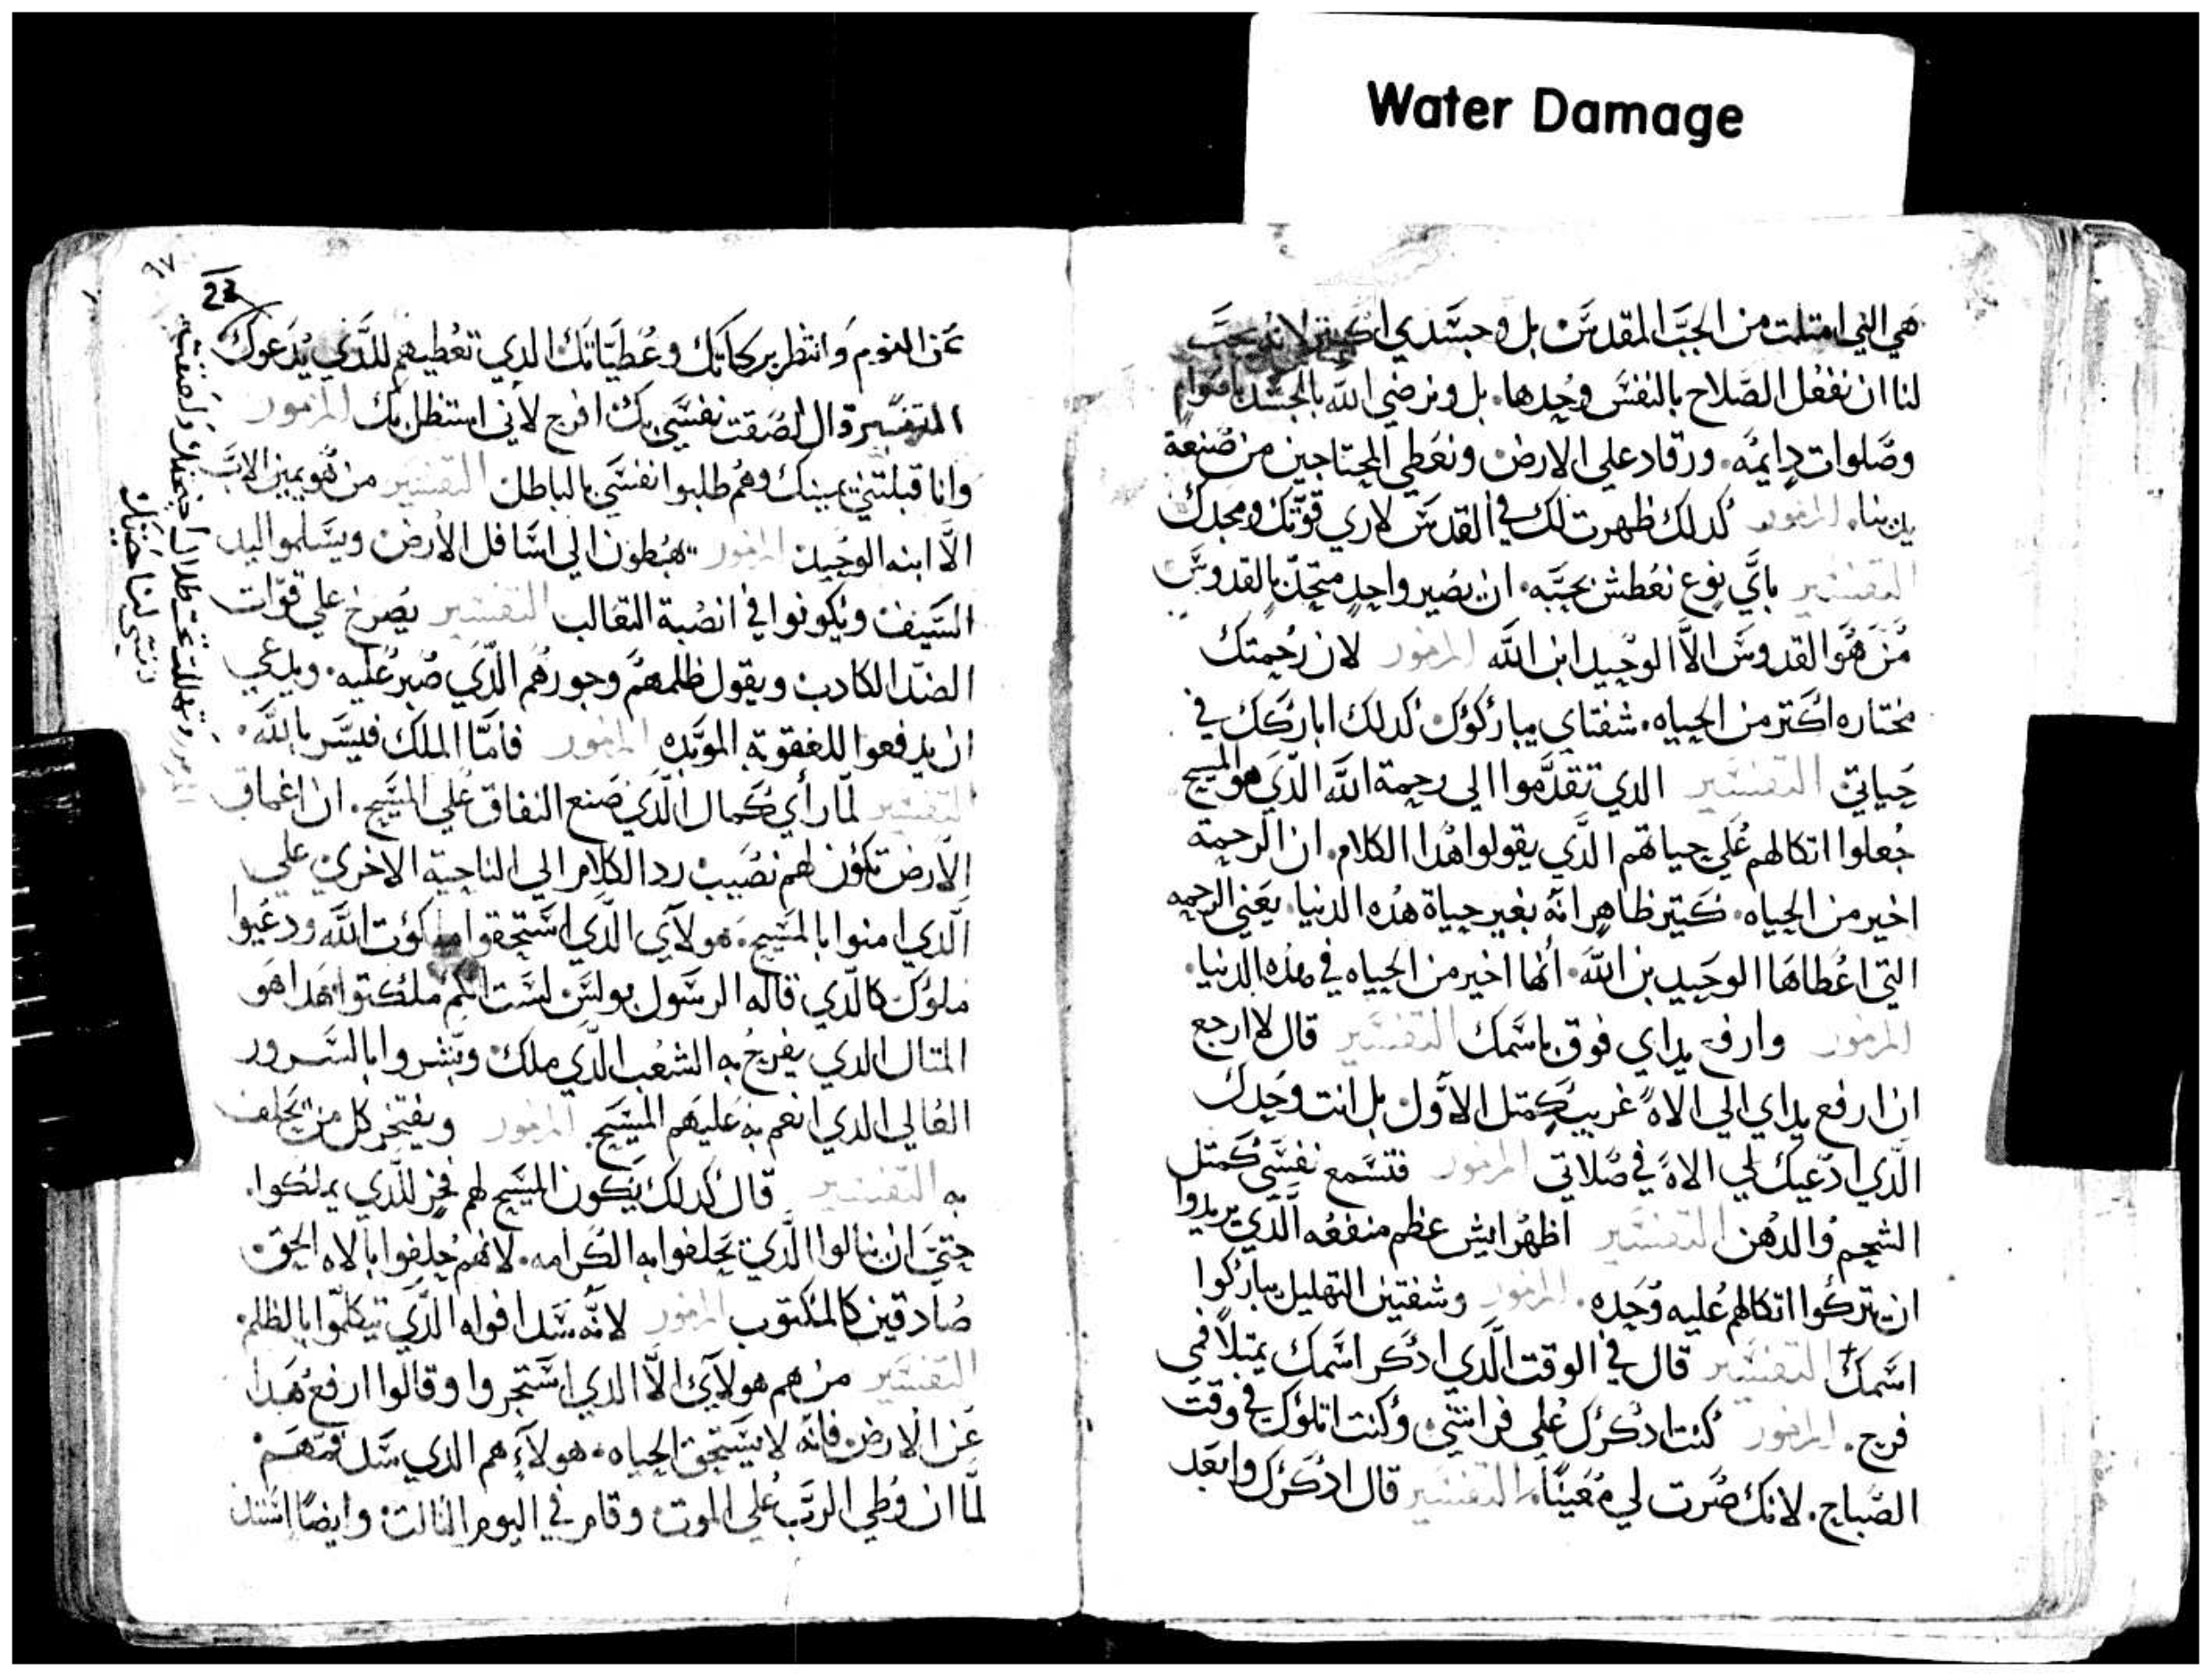 Water Damage
هي التي امتلت من الحب المقدس بل وجسدي اكتر لانه يجب
لنا ان نفعل الصلاح بالنفس وحدها. بل ونرضي الله بالجسد باصوام
وصلوات دايمه. ورقاد علي الارض ونعطي المحتاجين من صنعة
يدينا. المزمور كدلك ظهرت لك في القدس لاري قوتك ومجدك
التفسير باي نوع نعطش نحبه. ان يصير واحد متحد بالقدوس
من هو القدوس الا الوحيد ابن الله المزمور لان رحمتك
مختاره اكتر من الحياه. شفتاي يباركوك كدلك اباركك في
حياتي التفسير الدي تقدموا الي رحمة الله الدي هو المسيح
جعلوا اتكالهم علي حياتهم الدي يقولوا هدا الكلام. ان الرحمة
اخير من الحياه. كتير ظاهر انه بغير حياة هده الدنيا. يعني الرحمه
التي اعطاها الوحيد بن الله. انها اخير من الحياه في هده الدنيا.
المزمور وارفع يداي فوق باسمك التفسير قال لا ارجع
ان ارفع يداي الي الاه غريب كمتل الاول بل انت وحدك
الدي ادعيك لي الاه في صلاتي المزمور فتسمع نفسي كمتل
الشحم والدهن التفسير اظهر ايش عظم منفعه الدي يريدوا
ان يتركوا اتكالهم عليه وحده. المزمور وشفتين التهليل يباركوا
اسمك التفسير قال في الوقت الدي ادكر اسمك يمتلا فمي
فرح. المزمور كنت ادكرك علي فراشي وكنت اتلوك في وقت
الصباح. لانك صرت لي معينا. التفسير قال ادكرك وابعد
٩٧
22
عن النوم وانتظر بركاتك وعطياتك الدي تعطيهم للدي يدعوك
التفسير قال لصقت نفسي بك افرح لاني استظل بك المزمور
وانا قبلتني يمينك وهم طلبوا نفسي بالباطل التفسير من هو يمين الاب
الا ابنه الوحيد المزمور يهبطون الي اسافل الارض ويسلموا اليد
السيف ويكونوا في انصبة التعالب التفسير يصرخ علي قوات
الضد الكادب ويقول ظلمهم وجورهم الدي صبر عليه. ويدعي
ان يدفعوا للعقوبة الموبده المزمور فاما الملك فيسر بالله.
التفسير لما راي كمال الدي صنع النفاق علي المسيح. ان اعماق
الارض تكون لهم نصيب رد الكلام الي الناحية الاخري علي
الدي امنوا بالمسيح. هولاي الدي استحقوا ملكوت الله ودعيوا
ملوك كالدي قاله الرسول بولس لست انكم ملكتوا هدا هو
المتال الدي يفرح به الشعب الدي ملك وبشروا بالسرور
العالي الدي انعم به عليهم المسيح المزمور ويفتخر كل من يحلف
به التفسير قال كدلك يكون المسيح لهم فخر للدي يملكوا.
حتي ان ينالوا الدي يحلفوا به الكرامه. لانهم حلفوا بالاه الحق
صادقين كالمكتوب المزمور لانه سد افواه الدي تيكلموا بالظلم.
التفسير من هم هولاي الا الدي استجروا وقالوا ارفع هدا
عن الارض فانه لا يستحق الحياه. هولاء هم الدي سد فمهم
لما ان وطي الرب علي الموت وقام في اليوم التالت وايضا استد